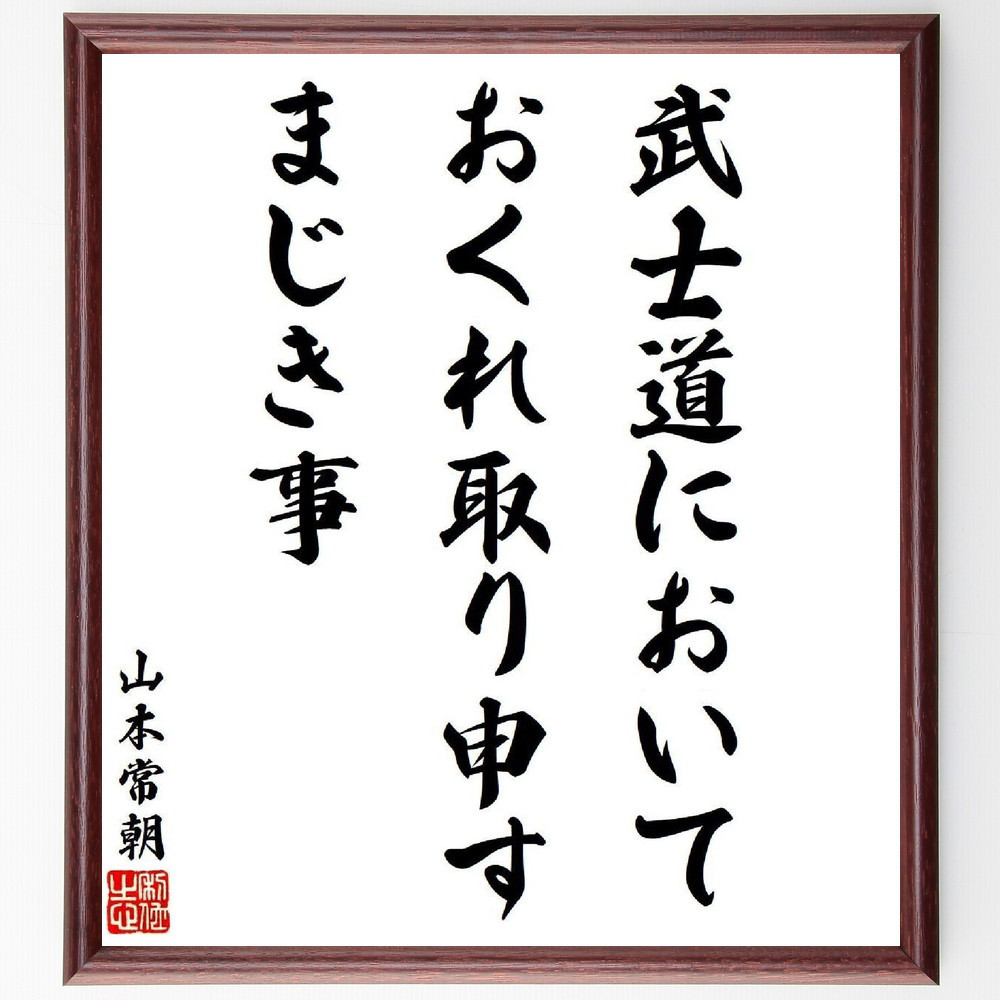 武士道において
おくれ取り申す
まじき事
山本常朝